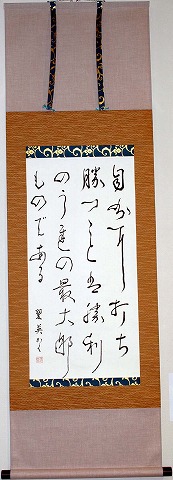 自分に打ち
勝つことは勝利
のうちの最大の
ものである